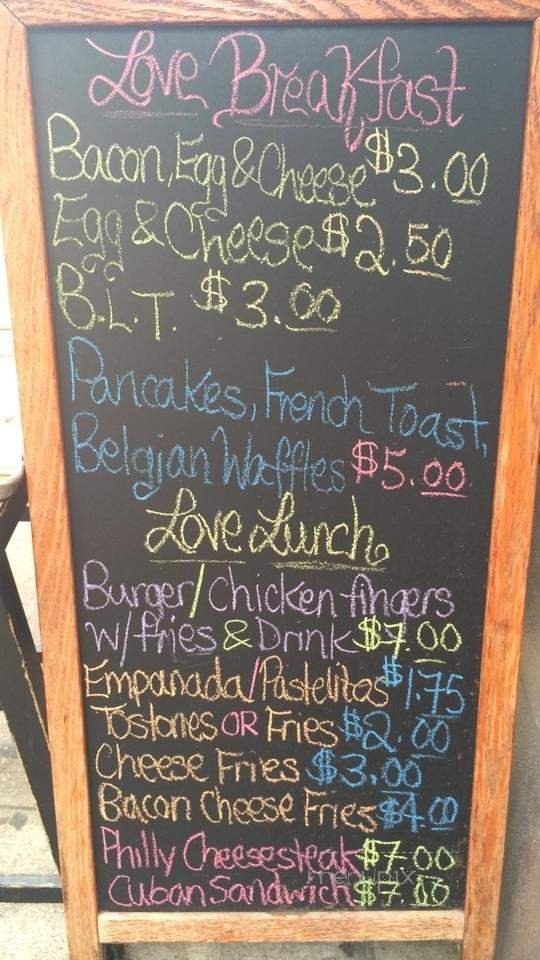 Love Breakfast
Bacon, Egg & Cheese $3.00
Egg & Cheese $2.50
B.L.T. $3.00
Pancakes, French Toast,
Belgian Waffles $5.00
Love Lunch
Burger/Chicken fingers
w/fries & Drink $7.00
Empanada/Pastelitos $1.75
Tostones OR Fries $2.00
Cheese Fries $3.00
Bacon Cheese Fries $4.00
Philly Cheesesteak $7.00
Cuban Sandwich $7.00
menupix